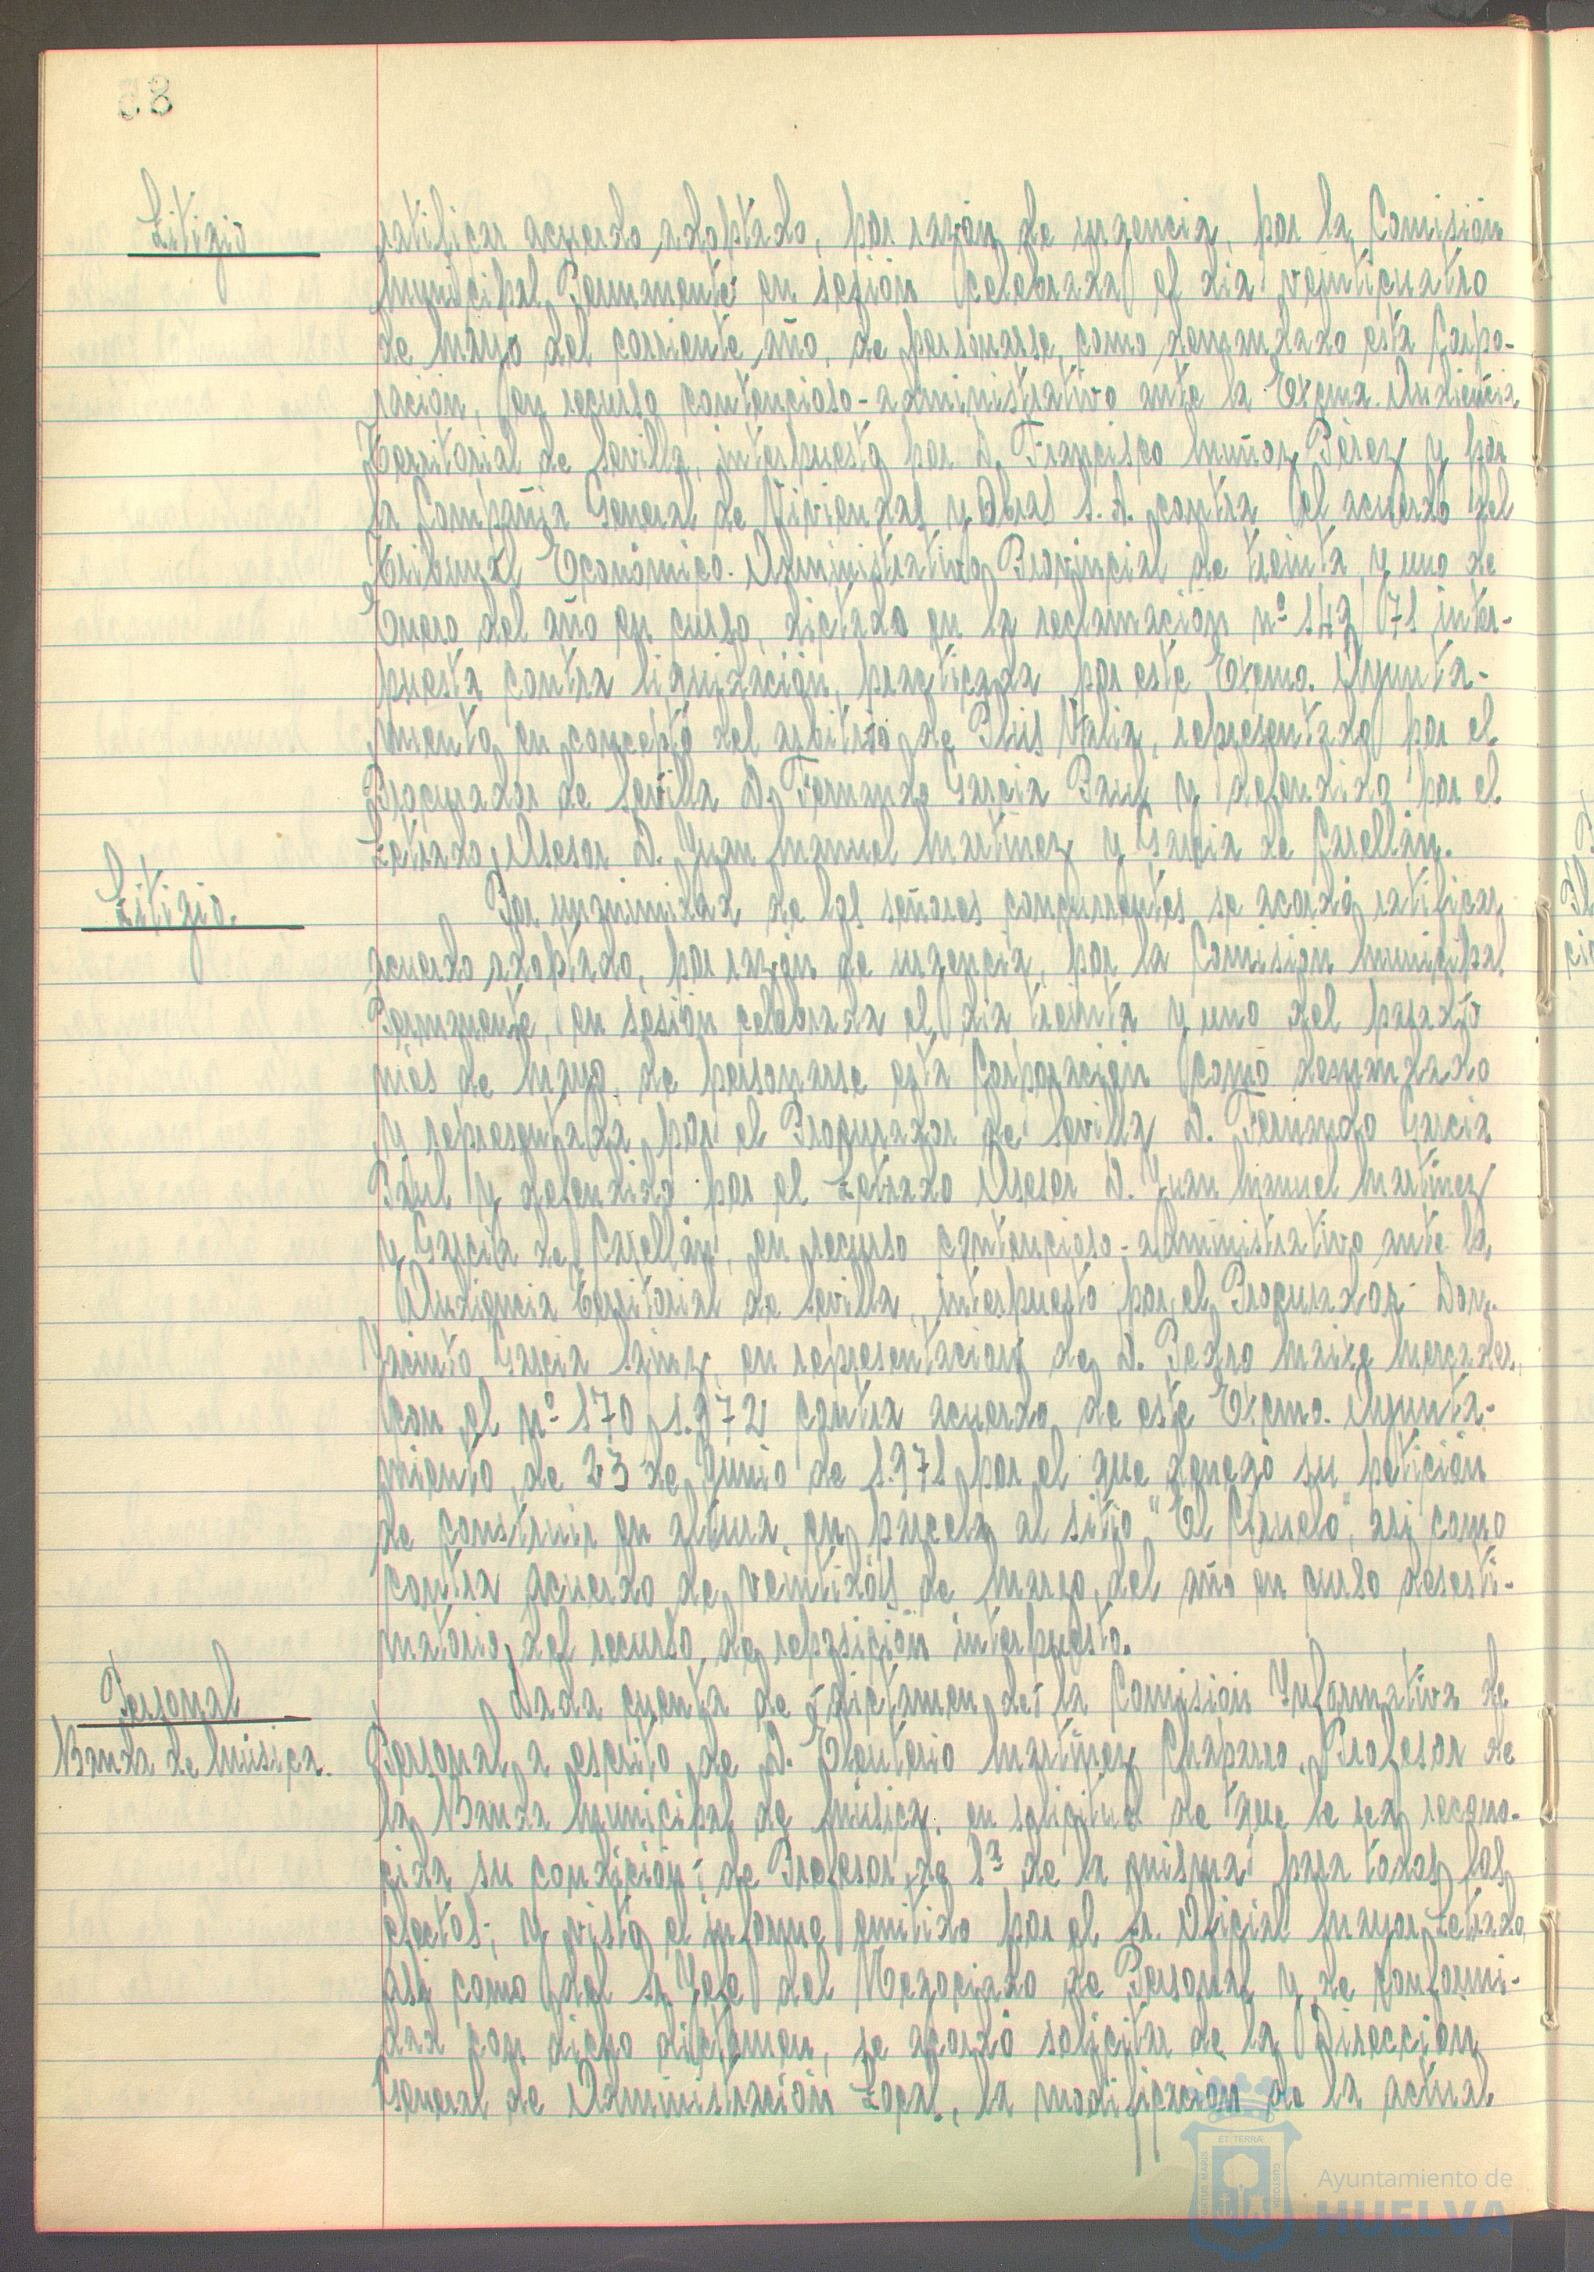 58
Litigio
ratificar acuerdo adoptado, por razón de urgencia, por la Comisión
Municipal Permanente en sesión celebrada el dia veinticuatro
de mayo del corriente año, de personarse, como demandado esta Corpo-
ración, en recurso contencioso-administrativo ante la Excma. Audiencia
Territorial de Sevilla, interpuesto por D. Francisco Muñoz Pérez y por
la Compañia General de Viviendas y Obras S.A. contra el acuerdo del
Tribunal Económico-Administrativo Provincial de treinta y uno de
Enero del año en curso, dictado en la reclamación nº 142/71 inter-
puesta contra liquidación, practicada por este Excmo. Ayunta-
miento en concepto del arbitrio de Plus Valia, representado por el
Procurador de Sevilla D. Fernando Garcia Paul y defendido por el
Letrado Asesor D. Juan Manuel Martinez y Garcia de Casellán.
Litigio.
Por unanimidad de los señores concurrentes se acordó ratificar
acuerdo adoptado, por razón de urgencia, por la Comisión Municipal
Permanente, en sesión celebrada el dia treinta y uno del pasado
mes de Mayo, de personarse esta Corporación como demandado
y representada por el Procurador de Sevilla D. Fernando Garcia
Paul y defendida por el Letrado Asesor D. Juan Manuel Martinez
y Garcia de Casellán, en recurso contencioso-administrativo ante la
Audiencia Territorial de Sevilla, interpuesto por el Procurador Don
Jacinto Garcia Sainz, en representación de D. Pedro Mercader,
con el nº 170/1.972 contra acuerdo de este Excmo. Ayunta-
miento de 23 de Junio de 1.971 por el que denegó su petición
de construir en altura en parcela al sitio "El Ciruelo", asi como
contra acuerdo de veintidós de Marzo del año en curso desesti-
matorio del recurso de reposición interpuesto.
Personal
Banda de Música.
Dada cuenta de dictamen de la Comisión Informativa de
Personal a escrito de D. Eleuterio Martinez Chaparro, Profesor de
la Banda Municipal de Música, en solicitud de que le sea recono-
cida su condición de Profesor de 1ª de la misma para todos los
efectos; y visto el informe emitido por el Sr. Oficial Mayor Letrado,
asi como del Sr. Jefe del Negociado de Personal y de conformi-
dad con dicho dictamen, se acordó solicitar de la Dirección
General de Administración Local, la modificación de la actual
Ayuntamiento de
HUELVA